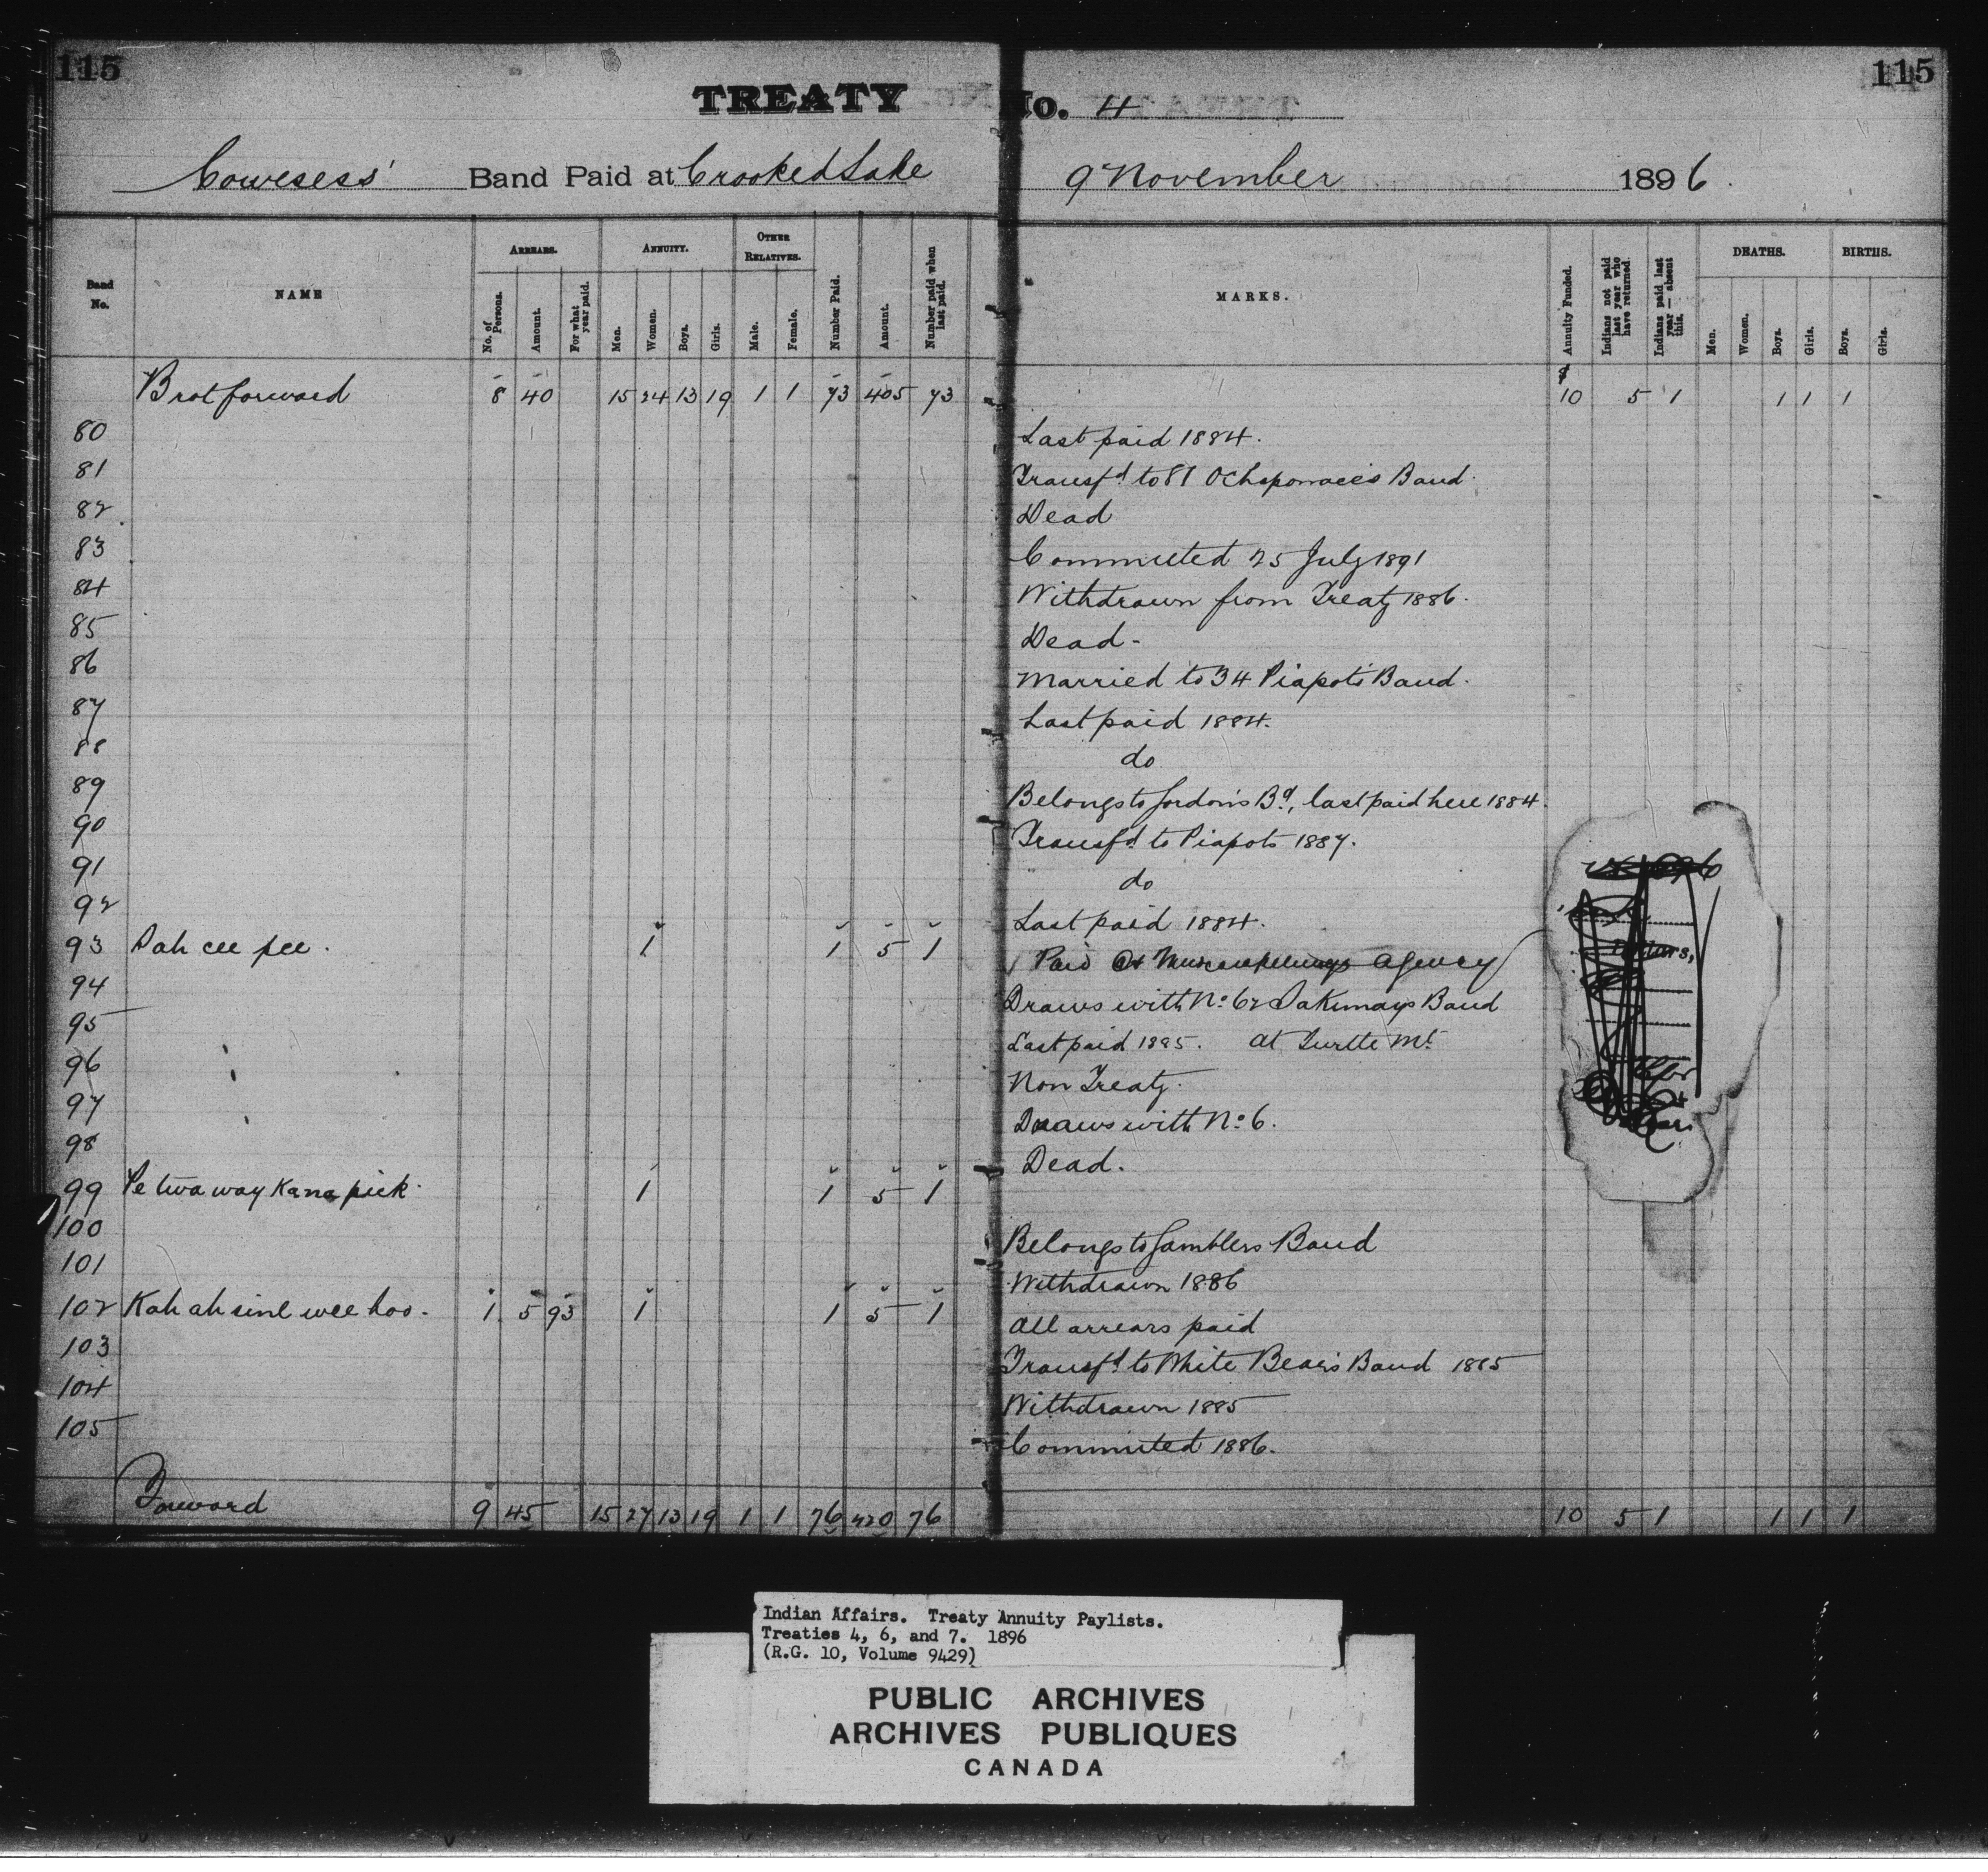 115
115
TREATY No. 4
Cowesess' Band Paid at Crooked Lake 9 November 1896.
Band No.
NAME
ARREARS.
No. of Persons.
Amount.
For what year paid.
ANNUITY.
Men.
Women.
Boys.
Girls.
OTHER RELATIVES.
Male.
Female.
Number Paid.
Amount.
Number paid when last paid.
MARKS.
Annuity Funded.
Indians not paid last year who have returned.
Indians paid last year — absent this.
DEATHS.
Men.
Women.
Boys.
Girls.
BIRTHS.
Boys.
Girls.
Brot forward 8 40 15 24 13 19 1 1 73 405 73 10 5 1 1 1 1
80 Last paid 1884.
81 Transfd to 81 Ochapowace's Band.
82 Dead
83 Commuted 25 July 1891
84 Withdrawn from Treaty 1886.
85 Dead-
86 Married to 34 Piapot's Band.
87 Last paid 1884.
88 do
89 Belongs to Gordon's Bd, last paid here 1884.
90 Transfd to Piapots 1887.
91 do
92 Last paid 1884.
93 Pah cee pee. 1 1 5 1 Paid at Muscowpetungs Agency
94 Draws with No 62 Sakimays Band
95 Last paid 1885. at Turtle Mt
96 Non Treaty.
97 Draws with No 6.
98 Dead.
99 Pe twa way Kana pick. 1 1 5 1
100 Belongs to Gamblers Band
101 Withdrawn 1886
102 Kah ah sine wee hoo. 1 5 93 1 1 5 1 All arrears paid
103 Transfd to White Bear's Band 1885
104 Withdrawn 1885
105 Commuted 1886.
Forward 9 45 15 27 13 19 1 1 76 420 76 10 5 1 1 1 1
Indian Affairs. Treaty Annuity Paylists.
Treaties 4, 6, and 7. 1896
(R.G. 10, Volume 9429)
PUBLIC ARCHIVES
ARCHIVES PUBLIQUES
CANADA